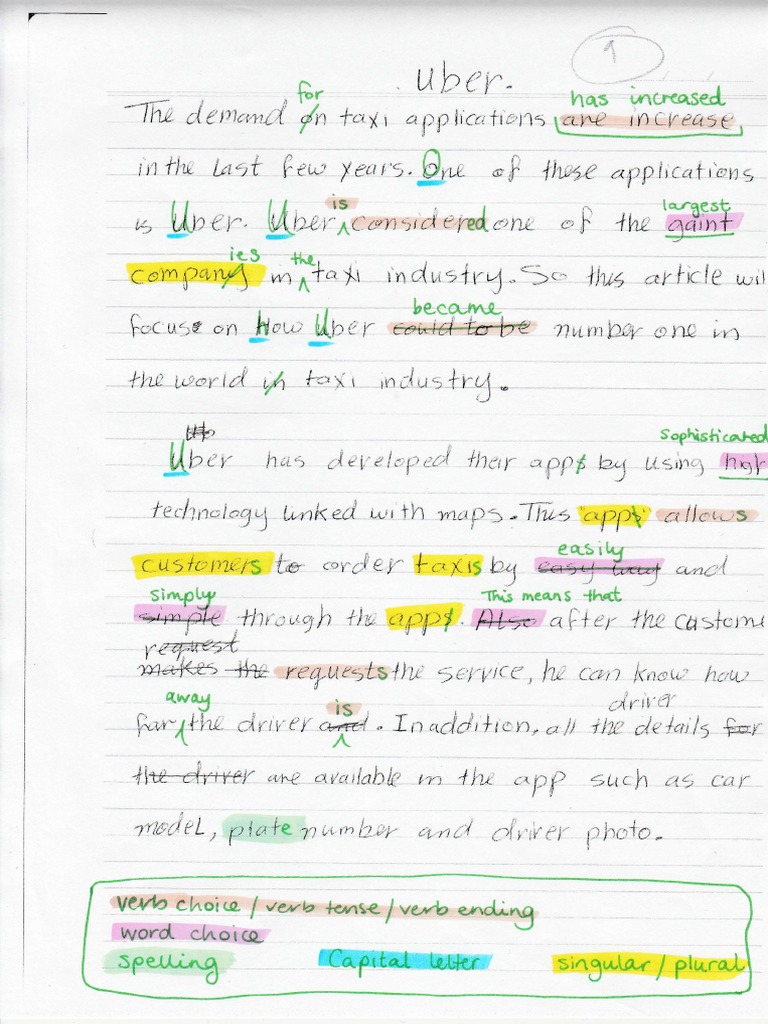 9
Uber.
for has increased
The demand on taxi applications are increase
in the last few years. One of these applications
is largest
is Uber. Uber considered one of the gaint
ies the
company in taxi industry. So this article will
became
focus on How Uber could to be number one in
the world in taxi industry.
sophisticated
Uber has developed their apps by using high
technology linked with maps. This "apps" allows
easily
customers to order taxis by easy way and
simply This means that
simple through the apps. Also after the custome
request
makes the requests the service, he can know how
away is driver
far the driver and. In addition, all the details for
the driver are available in the app such as car
model, plate number and driver photo.
verb choice / verb tense / verb ending
word choice
spelling Capital letter singular / plural